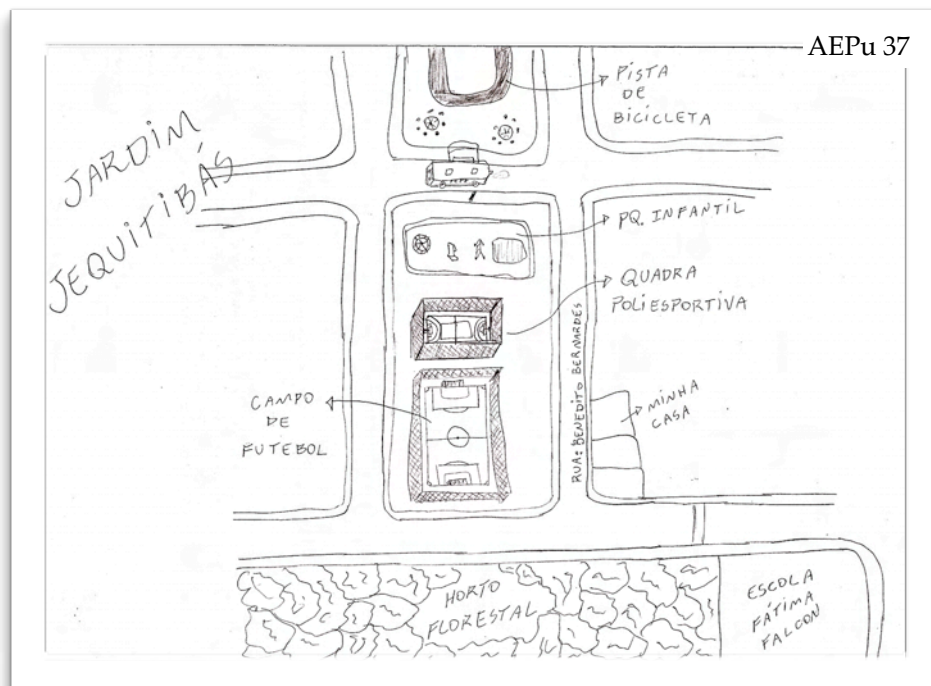 AEPu 37
JARDIM
JEQUITIBÁS
PISTA
DE
BICICLETA
PQ. INFANTIL
QUADRA
POLIESPORTIVA
RUA: BENEDITO BERNARDES
MINHA
CASA
CAMPO
DE
FUTEBOL
HORTO
FLORESTAL
ESCOLA
FÁTIMA
FALCON